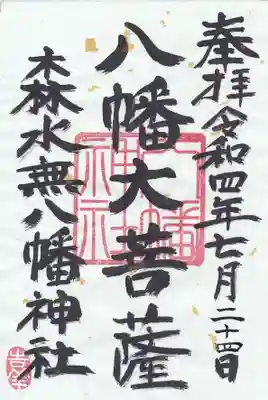 奉拝 令和四年七月二十四日
八幡大菩薩
森水無八幡神社
八幡神社